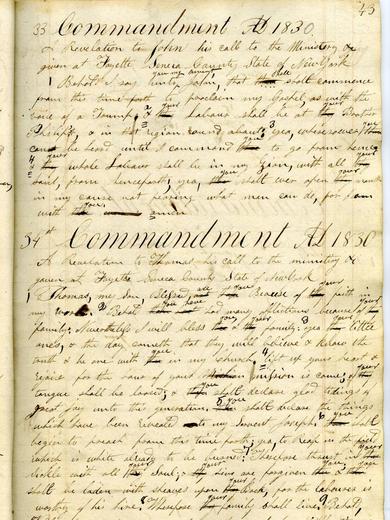 43
33 Commandment AD 1830
A Revelation to John his call to the Ministery &
given at Fayette Seneca County State of New York
1 Behold I say unto you my servent John, that thou shalt commence
from this time forth to proclaim my Gospel, as with the
voice of a Trump 2 & your Labour shall be at thy Brother
Philip's, & in that region round about 3 yea, wheresoever
can be heard until I command you to go from hence
4 & your whole Labour shall be in my Zion, with all your
Soul, from henceforth; yea, you shall ever open your mouth
in my cause not fearing what men can do, for I am
with you Amen
34th Commandment AD 1830
A Revelation to Thomas his call to the ministry &
given at Fayette Seneca County State of New York
1 Thomas my son, blessed are you Because of your faith in
my work. 2 Behold you had many afflictions because of
family; Nevertheless I will bless you & your family; 3 yea your little
ones, & the day cometh that they will believe & know the
truth & be one with you in my church, 4 lift up your heart &
rejoice for the hour of your mission is come; & your
tongue shall be loosed; & you shall declare glad tidings of
great joy unto this generation. 5 you shall declare the things
which have been revealed to my Servent Joseph; you shall
begin to preach from this time forth; yea, to reap in the field
which is white already to be burned 7 therefore thrust in your
sickle with all your Soul; & your sins are forgiven you &
shall be laden with sheaves upon your Back, for the labourer is
worthy of his hire. Wherefore your family shall live. 9 Behold,